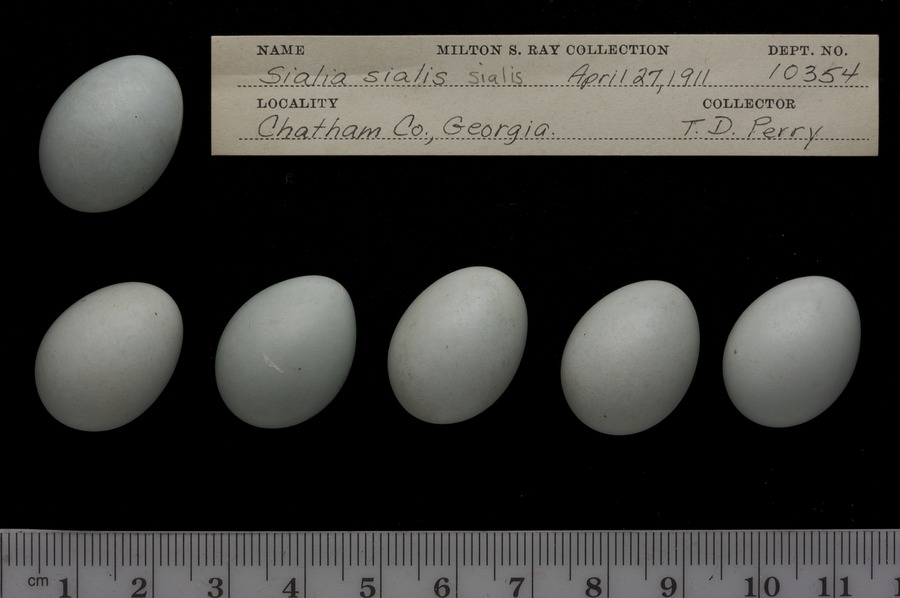 NAME MILTON S. RAY COLLECTION DEPT. NO.
Sialia sialis sialis April 27, 1911 10354
LOCALITY COLLECTOR
Chatham Co., Georgia. T. D. Perry
cm 1 2 3 4 5 6 7 8 9 10 11 1